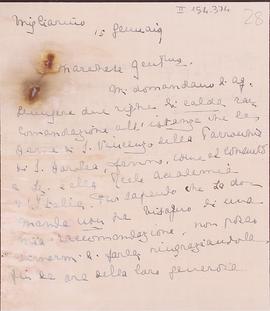 II 154.374
28
Migliarino
15 Gennaio
Marchese gentmo.
Mi domandano di ag-
giungere due righe di calda rac-
comandazione all'istanza che le
Dame di S. Vincenzo della Parrocchia
di S. fanno, come di consueto
a Reale Accademia
d'Italia. Pur sapendo che la do-
manda non ha bisogno di una
mia raccomandazione, non posso
di farlo, ringraziandola
fin da ora della loro generosità